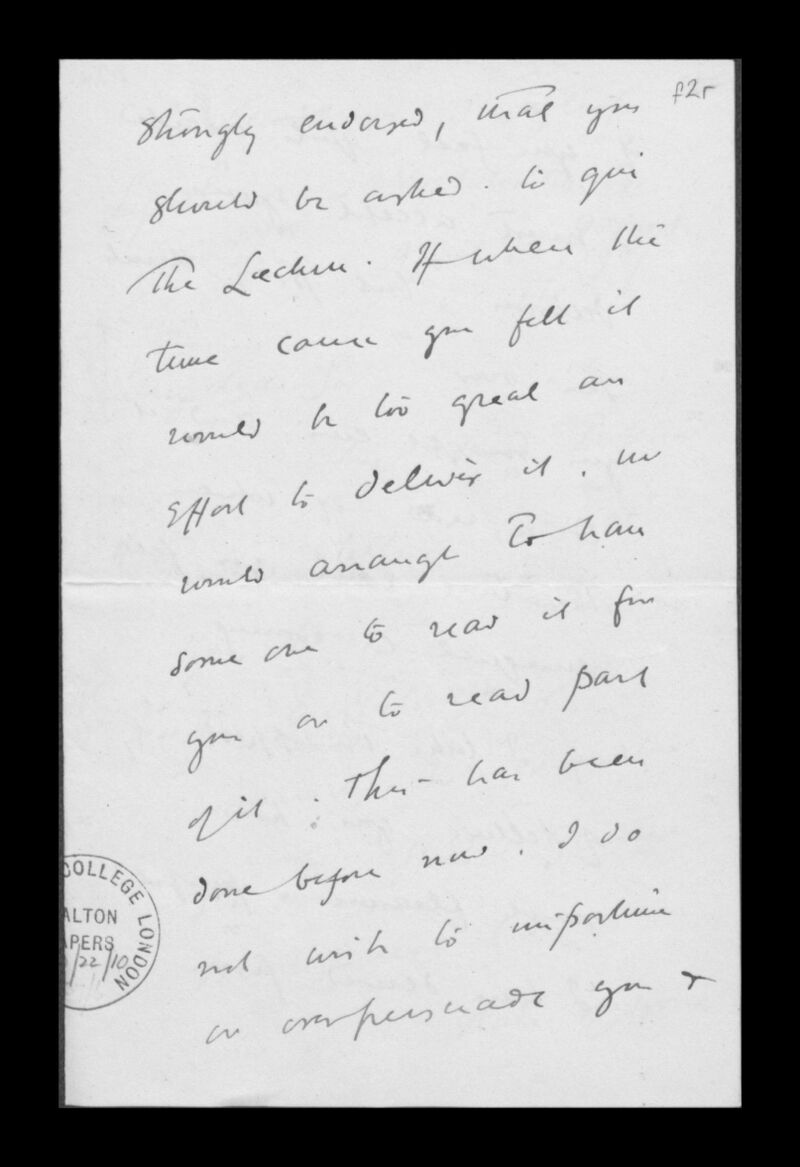 f2r
strongly endorsed, that you
should be asked to give
The Lecture. If when the
time came you felt it
would be too great an
effort to deliver it, we
would arrange to have
some one to read it for
you or to read part
of it. This has been
done before now. I do
not wish to importune
or overpersuade you &
COLLEGE LONDON
ALTON
APERS
/22/10